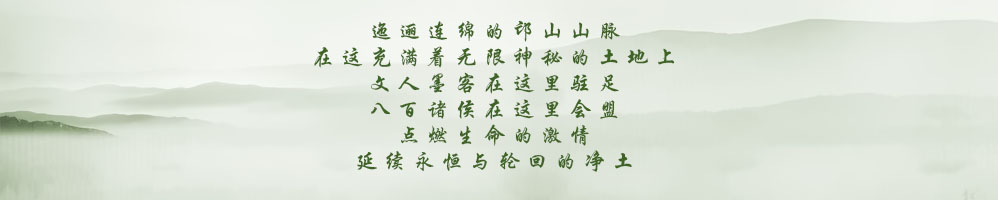 迤逦连绵的邙山山脉
在这充满着无限神秘的土地上
文人墨客在这里驻足
八百诸侯在这里会盟
点燃生命的激情
延续永恒与轮回的净土